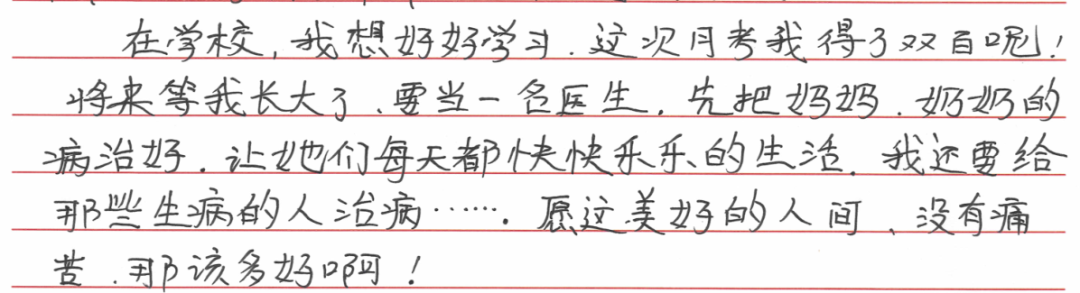 在学校,我想好好学习.这次月考我得了双百呢!
将来等我长大了、要当一名医生.先把妈妈.奶奶的
病治好.让她们每天都快快乐乐的生活.我还要给
那些生病的人治病…….愿这美好的人间、没有痛
苦.那该多好啊!